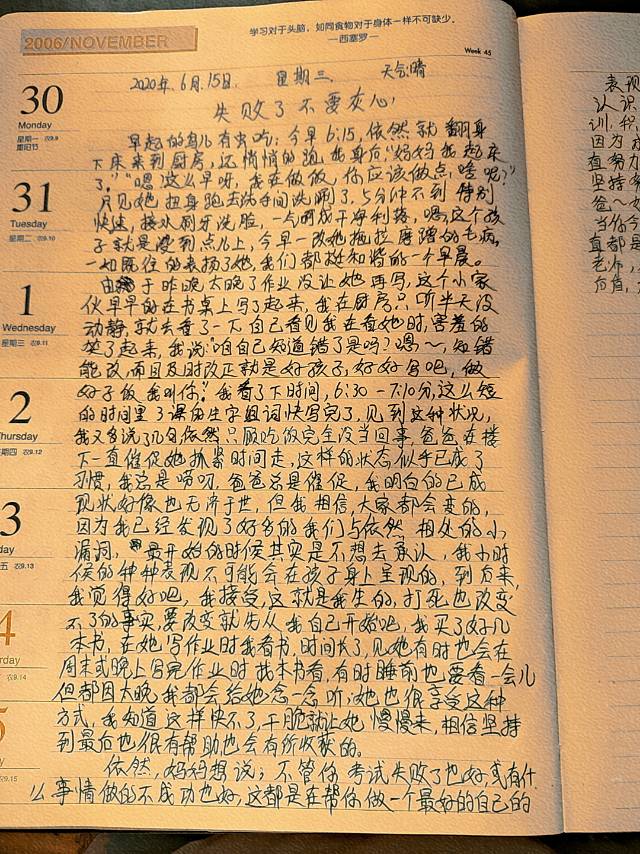 2006/NOVEMBER
学习对于头脑，如同食物对于身体一样不可缺少。
—西塞罗—
Week 45
2020年.6月.15日. 星期三. 天气:晴
失败了不要灰心!
30
Monday
星期一 农9.9
重阳节
早起的鸟儿有虫吃: 今早6:15, 依然就翻身
下床来到厨房, 还悄悄的跑我身后,"妈妈我起来
了." "嗯这么早呀, 我在做饭, 你应该做点啥呢?"
31
Tuesday
星期二 农9.10
只见她扭身跑去洗手间洗漱了, 5分钟不到特别
快速, 接水刷牙洗脸, 一气呵成干净利落, 嗯,这个孩
子就是说到点儿上, 今早一改她拖拉磨蹭的毛病,
一如既往的表扬了她, 我们都挺和谐的一个早晨。
1
Wednesday
星期三 农9.11
由于昨晚太晚了作业没让她再写, 这个小家
伙早早的在书桌上写了起来, 我在厨房只听半天没
动静, 就去看了一下自己看见我在看她时, 害羞的
笑了起来, 我说:"咱自己知道错了是吗? 嗯~, 知错
能改, 而且及时改正就是好孩子, 好好写吧, 做
2
Thursday
星期四 农9.12
好了饭我叫你." 我看了下时间, 6:30-7:10分,这么短
的时间里了课由生字组词快写完了, 见到这种状况,
我又多说了几句依然只顾吃饭完全没当回事, 爸爸在楼
下一直催促她抓紧时间走, 这样的状态似乎已成了
习惯, 我总是唠叨, 爸爸总是催促, 我明白的已成
3
农9.13
现状好像也无济于世, 但我相信, 大家都会变的,
因为我已经发现了好多的我们与依然相处的小
漏洞, 最开始的时候其实是不想去承认, 我小时
候的种种表现不可能会在孩子身上呈现的, 到后来,
4
农9.14
我觉得好吧, 我接受, 这就是我生的, 打死也改变
不了的事实, 要改变就先从我自己开始吧, 我买了好几
本书, 在她写作业时我看书, 时间长了, 见她有时也会在
周末或晚上写完作业时找本书看, 有时睡前也要看一会儿
5
农9.15
但都因太晚, 我都会给她念一念听, 她也很享受这种
方式, 我知道这样快不了, 干脆就让她慢慢来, 相信坚持
到最后也很有帮助也会有所收获的。
依然, 妈妈想说; 不管你考试失败了也好, 或有什
么事情做的不成功也好, 这都是在帮你做一个最好的自己的
表现
认识
训, 积
因为
直努力
坚持
爸~
当你今
直都是
老师,